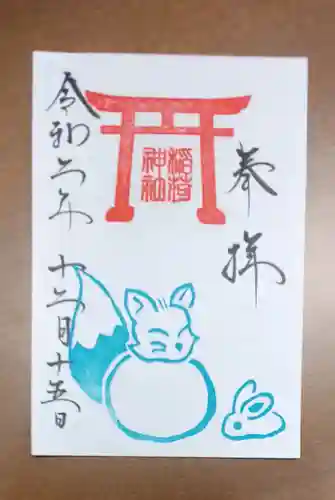 奉拝
稲荷
神社
令和六年十二月十五日